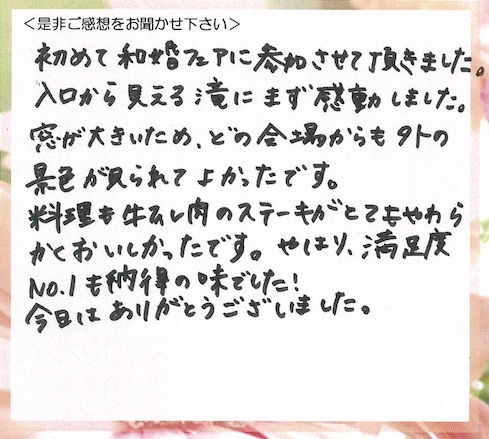 ＜是非ご感想をお聞かせ下さい＞
初めて和婚フェアに参加させて頂きました。
入口から見える滝にまず感動しました。
窓が大きいため、どの会場からも外の
景色が見られてよかったです。
料理も牛ヒレ肉のステーキがとてもやわら
かくおいしかったです。やはり、満足度
NO.1も納得の味でした!
今日はありがとうございました。